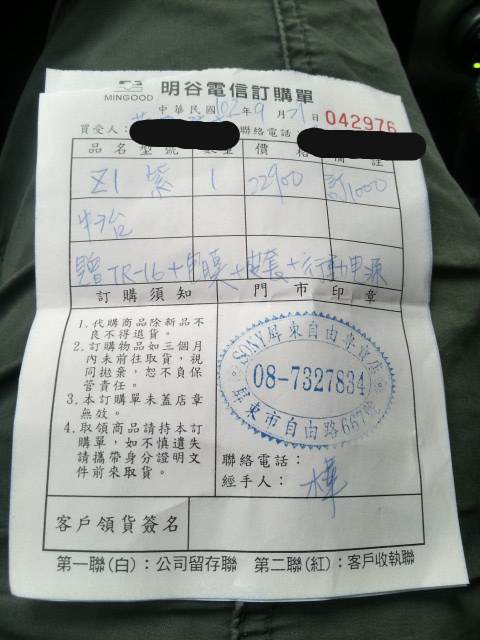 明谷電信訂購單
MINGOOD
中華民國102年9月21日 042976
買受人： 聯絡電話
品名型號 數量 價格 備註
Z1 紫 1 22900 訂1000
中冶
贈TR-16+甲膜+皮套+行動+申源
訂購須知 門市印章
1.代購商品除新品不
良不得退貨。
2.訂購物品如三個月
內未前往取貨，視
同拋棄，恕不負保
管責任。
3.本訂購單未蓋店章
無效。
4.取領商品請持本訂
購單，如不慎遺失
請攜帶身分證明文
件前來取貨。
SONY屏東自由專賣店
08-7327834
屏東市自由路667號
聯絡電話：
經手人： 樺
客戶領貨簽名
第一聯(白)：公司留存聯 第二聯(紅)：客戶收執聯